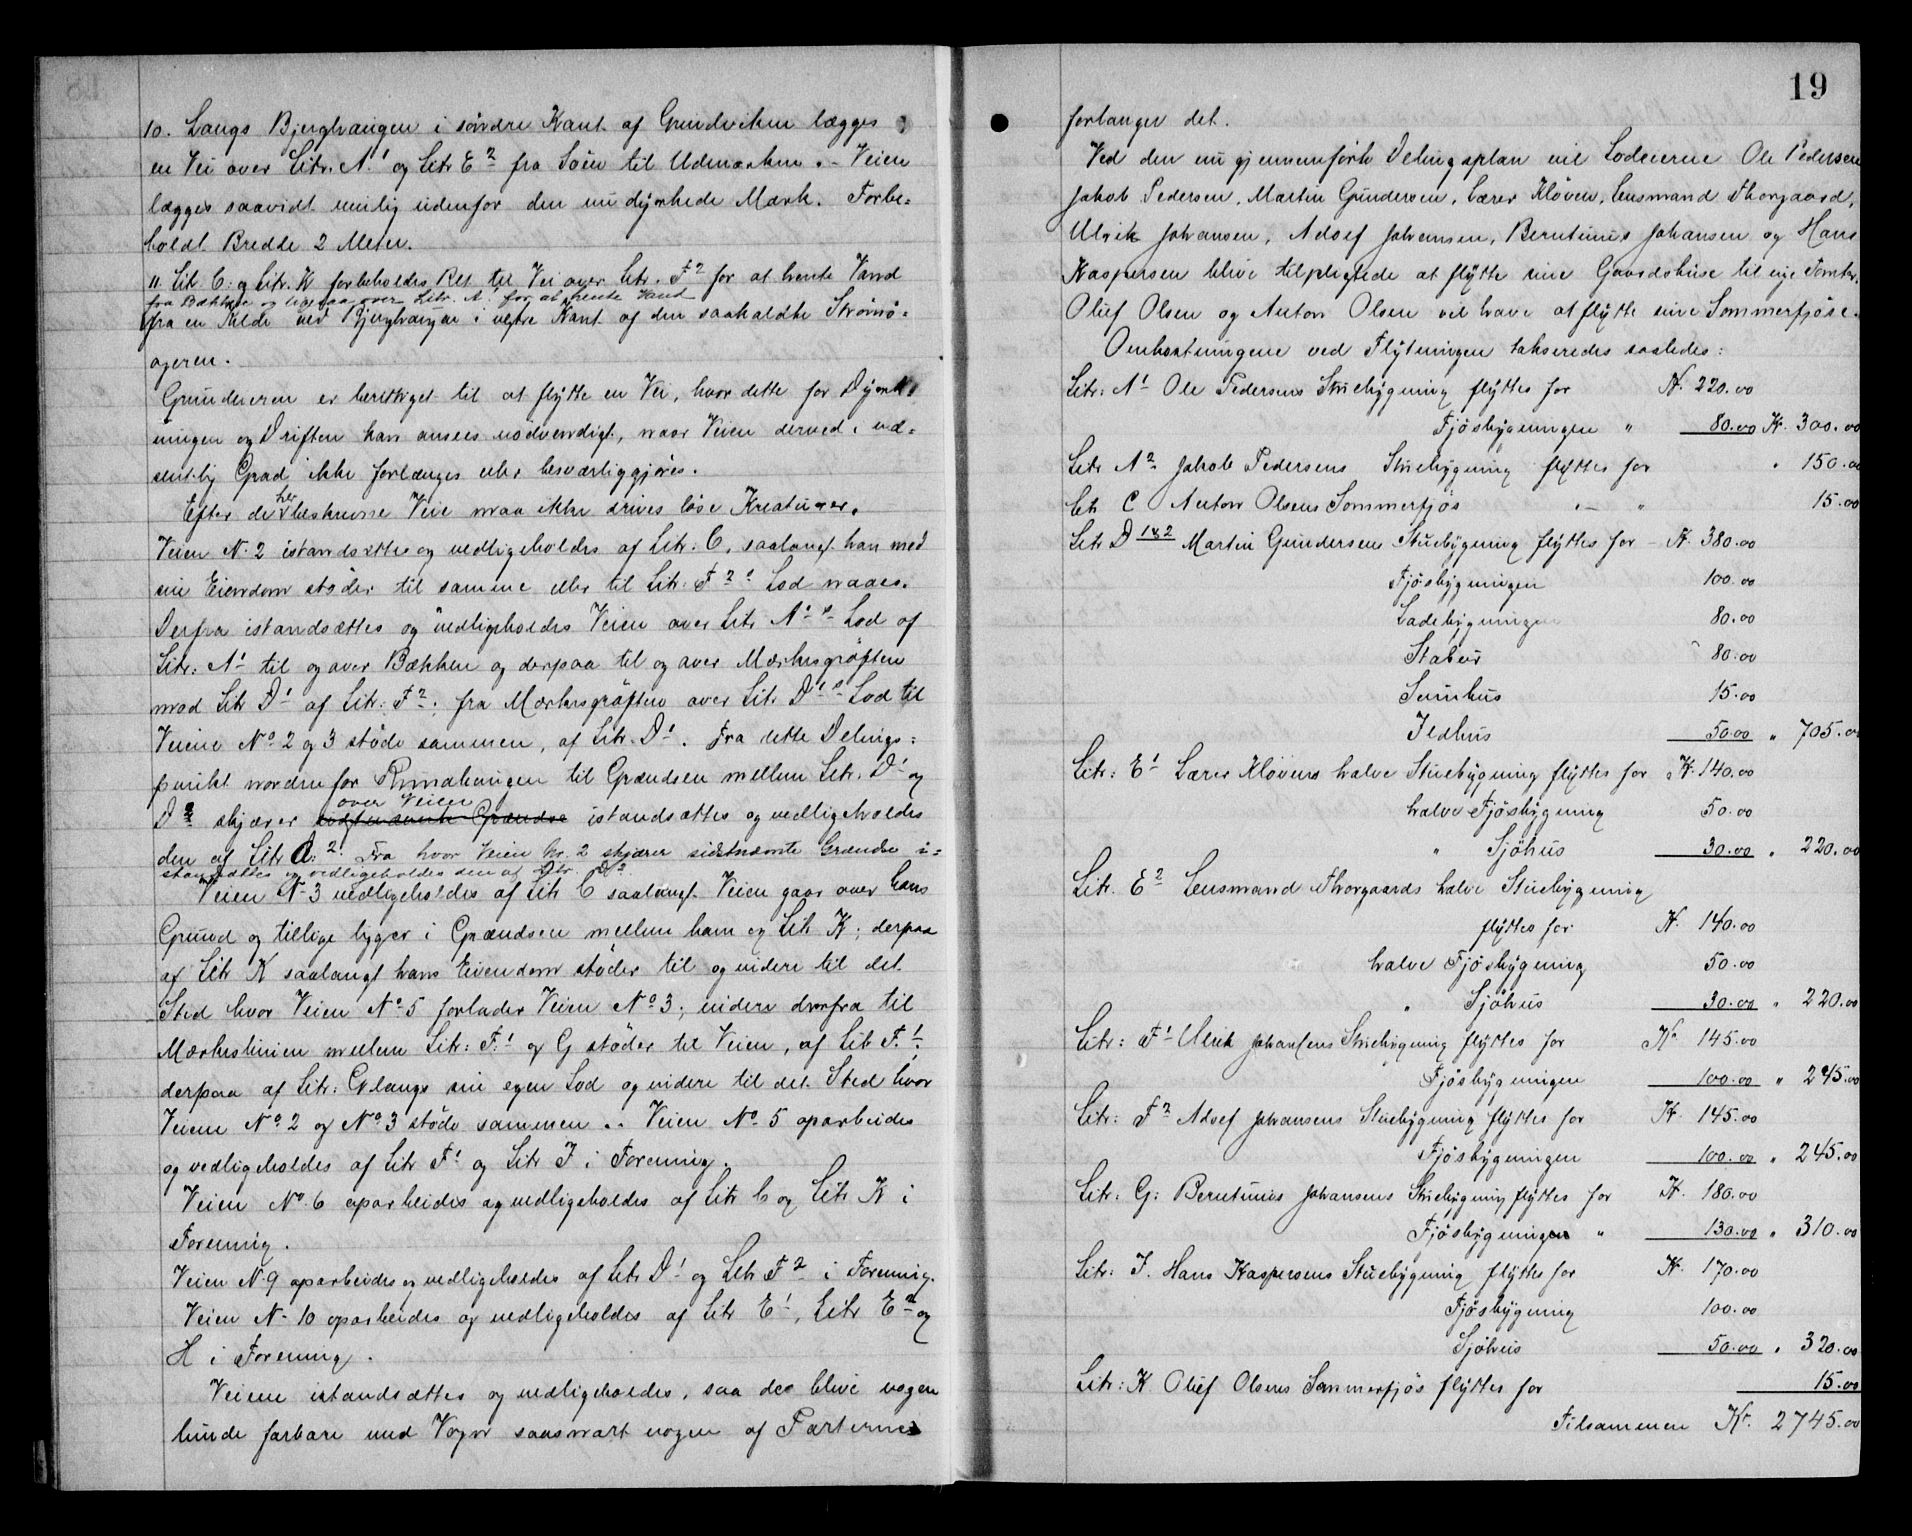 10. Langs Bjerghaugen i söndre Kant af Grundviken lægges
en Vei over Litr. A.1 og Litr E2 fra Söen til Udmarken. - Veien
lægges saavidt mulig udenfor den nu dyrkede Mark. Forbe=
holdt Bredde 2 Meter.
11. Litr C. og Litr. K forbeholdes Ret til Vei over Litr. F2 for at hente Vand
fra Bækken og ligesaa over Litr. A1 for at hente Vand
fra en Kilde ved Bjerghaugen i vestre Kant af den saakaldte
ageren.
Grundeieren er berettiget til at flytte en Vei, hvor dette for Dyrk-
ningen og Driften kan ansees nødvendigt, naar Veien derved i væ=
sentlig Grad ikke forlænges eller besværliggjöres.
her
Efter de beskrevne Veie maa ikke drives löse Kreaturer.
Veien N. 2 istandsættes og vedligeholdes af Litr: C, saalangt han med
sin Eiendom støder til samme eller til Litr: F2s Lod naaes.
Derfra istandsættes og vedligeholdes Veien over Litr A1s Lod af
Litr: A1 til og over Bækken og derpaa til og over Mærkesgröften
mod Litr D1 af Litr: F2; fra Mærkesgröften over Litr D1s Lod til
Veiene No 2 og 3 stöde sammen, af Litr. D1. Fra dette Delings=
punkt nordenfor Rundhaugen til Grændsen mellem Litr. D1 og
over Veien
D2 skjærer sidstnævnte Grændse istandsættes og vedligeholdes
den af Litr D.2. Fra hvor Veien Nr. 2 skjærer sidstnævnte Grændse i=
standsættes og vedligeholdes den af Litr. D2
Veien N. 3 vedligeholdes af Litr C saalangt Veien gaar over hans
Grund og tillige ligger i Grændsen mellem ham og Litr K; derpaa
af Litr K saalangt hans Eiendom støder til og videre til det
Sted hvor Veien No 5 forlader Veien No 3; videre derfra til
Mærkeslinien mellem Litr: F.1 og G støder til Veien, af Litr F.1;
derpaa af Litr: G langs sin egen Lod og videre til det Sted hvor
Veiene No 2 og No 3 støde sammen. . Veien No 5 oparbeides
og vedligeholdes af Litr F1 og Litr J i Forening.
Veien No. 6 oparbeides og vedligeholdes af Litr C og Litr K i
Forening.
Veien N. 9 oparbeides og vedligeholdes af Litr D1 og Litr F2 i Forening.
Veien N. 10 oparbeides og vedligeholdes af Litr E1, Litr E2 og
H i Forening.
Veiene istandsættes og vedligeholdes, saa de blive nogen
lunde farbare med Vogn saasnart nogen af Parterne
19
forlanger det.
Ved den nu gjennemførte Delingsplan vil Lodeierne Ole Pedersen
Jakob Pedersen, Martin Gundersen, Lærer Kløven, Lensmand Thorgaard,
Ulrik Johansen, Adolf Johansen, Berntinus Johansen og Hans
Kaspersen blive tilpligtede at flytte sine Gaardshuse til nye Tomter.
Oluf Olsen og Anton Olsen vil have at flytte sine Sommerfjöse.
Omkostningene ved Flytningen takseredes saaledes:
Litr: A1 Ole Pedersens Stuebygning flyttes for Kr. 220.00
Fjösbygningen " 80.00 Kr. 300.00
Litr A2 Jakob Pedersens Stuebygning flyttes for " 150.00
Litr C Anton Olsens Sommerfjös " — " 15.00
Litr D 1&2 Martin Gundersens Stuebygning flyttes for - Kr. 380.00
Fjösbygningen 100.00
Ladebygningen 80.00
Stabur 80.00
Smihus 15.00
Ildhus 50.00 " 705.00
Litr: E1 Lærer Kløvens halve Stuebygning flyttes for Kr. 140.00
halve Fjösbygning 50.00
" Sjöhus 30.00 " 220.00
Litr. E2 Lensmand Thorgaards halve Stuebygning
flyttes for Kr. 140.00
halve Fjösbygning 50.00
" Sjöhus 30.00 " 220.00
Litr: F1 Ulrik Johansens Stuebygning flyttes for Kr 145.00
Fjösbygningen 100.00 " 245.00
Litr: F2 Adolf Johansens Stuebygning flyttes for Kr. 145.00
Fjösbygningen 100.00 " 245.00
Litr: G: Berntinus Johansens Stuebygning flyttes for Kr. 180.00
Fjösbygningen " 130.00 " 310.00
Litr: J. Hans Kaspersens Stuebygning flyttes for Kr. 170.00
Fjösbygning 100.00
Sjöhus 50.00 " 320.00
Litr: K Oluf Olsens Sommerfjös flyttes for 15.00
Tilsammen Kr. 2745.00